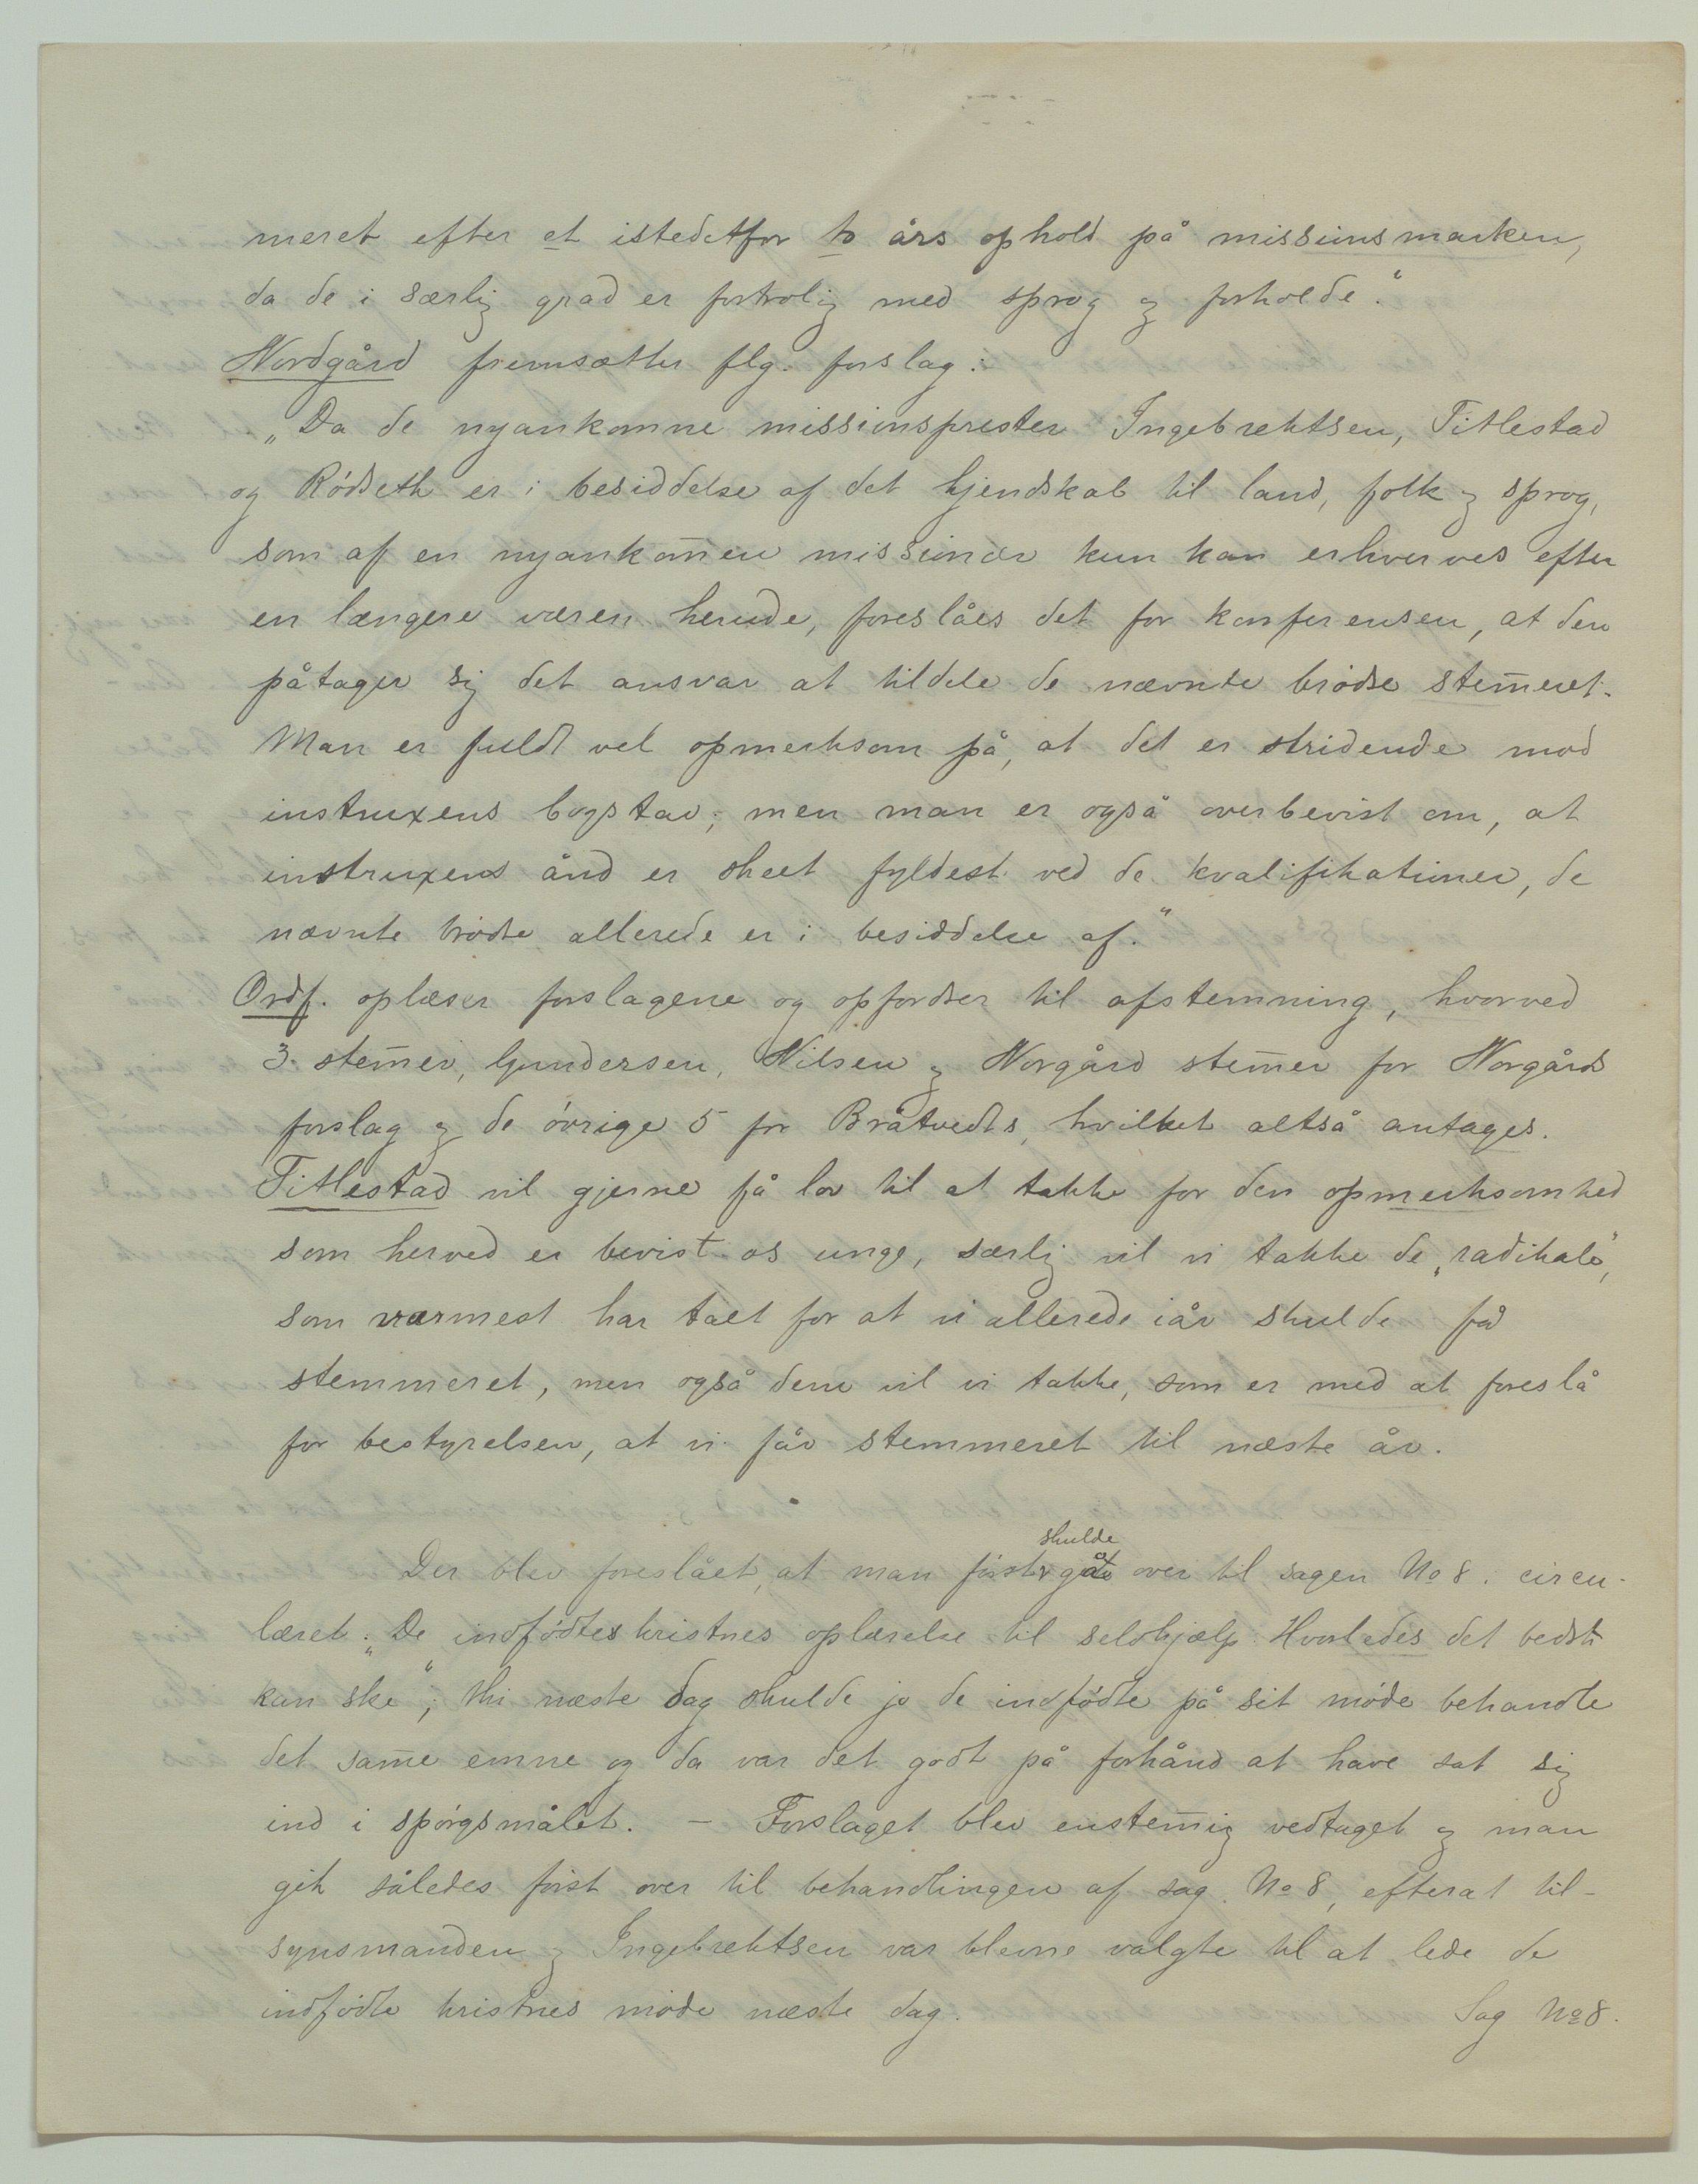 meret efter et istedetfor to års ophold på missionsmarken,
da de i særlig grad er fortrolig med sprog og forholde."
Nordgård fremsætter flg. forslag:
„Da de nyankomne missionsprester Ingebrektsen, Titlestad
og Rödseth er i besiddelse af det kjendskab til land, folk og sprog,
som af en nyankom̅en missionær kun kan erhverves efter
en længere væren herude, foreslåes det for konferensen, at den
påtager sig det ansvar at tildele de nævnte brödre stem̅eret.
Man er fuldt vel opmerksom på, at det er stridende mod
instruxens bogstav; men man er også overbevist om, at
instruxens ånd er skeet fyldest ved de kvalifikationer, de
nævnte brödre allerede er i besiddelse af."
Ordf. oplæser forslagene og opfordrer til afstemning, hvorved
3 stem̅er, Gundersen, Nilsen og Norgård stem̅er for Norgårds
forslag og de övrige 5 for Bråtvedts, hvilket altså antages.
Titlestad vil gjerne få lov til at takke for den opmerksomhed
som herved er bevist os unge, særlig vil vi takke de „radikale",
som varmest har talt for at vi allerede iår skulde få
stemmeret, men også dem vil vi takke, som er med at foreslå
for bestyrelsen, at vi får stemmeret til næste år.
skulde
Der blev foreslået, at man först gå over til sagen No 8. circu-
læret: „De indfödtes kristnes oplærelse til selvhjælp. Hvorledes det bedst
kan ske"; thi næste dag skulde jo de indfödte på sit möde behandle
det sam̅e emne og da var det godt på forhånd at have sat sig
ind i spörgsmålet. — Forslaget blev enstem̅ig vedtaget og man
gik således först over til behandlingen af sag No 8, efterat til-
synsmanden og Ingebrektsen var blevne valgte til at lede de
indfödte kristnes möde næste dag. Sag No 8.